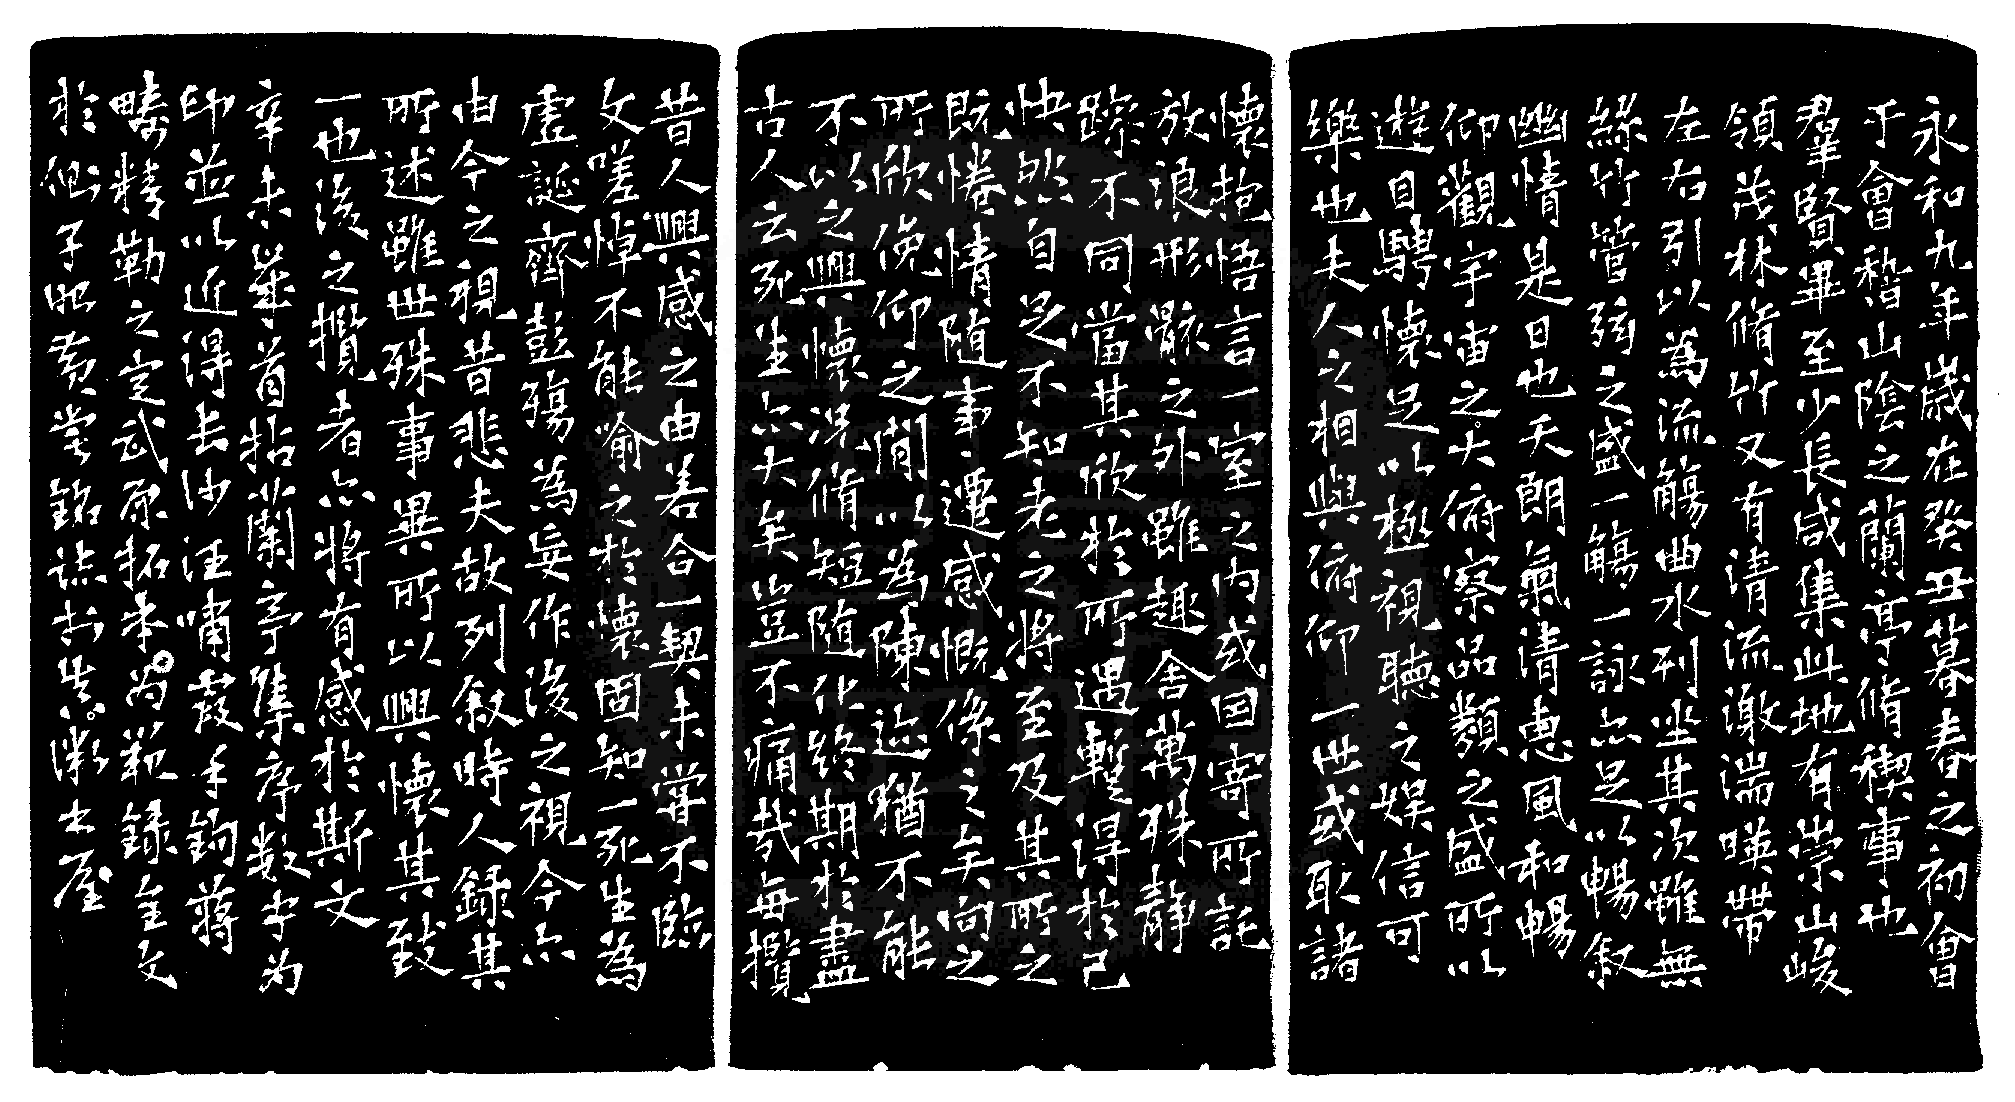 永和九年歲在癸丑暮春之初會
于會稽山陰之蘭亭脩禊事也
羣賢畢至少長咸集此地有崇山峻
領茂林脩竹又有清流激湍暎帶
左右引以為流觴曲水列坐其次雖無
絲竹管弦之盛一觴一詠亦足以暢叙
幽情是日也天朗氣清惠風和暢
仰觀宇宙之大俯察品類之盛所以
遊目騁懷足以極視聽之娛信可
樂也夫人之相與俯仰一世或取諸
懷抱悟言一室之內或因寄所託
放浪形骸之外雖趣舍萬殊靜
躁不同當其欣於所遇暫得於己
快然自足不知老之將至及其所之
既惓情隨事遷感慨係之矣向之
所欣俛仰之閒以為陳迹猶不能
不以之興懷況脩短隨化終期於盡
古人云死生亦大矣豈不痛哉每攬
昔人興感之由若合一契未嘗不臨
文嗟悼不能喻之於懷固知一死生為
虛誕齊彭殤為妄作後之視今亦
由今之視昔悲夫故列叙時人録其
所述雖世殊事異所以興懷其致
一也後之攬者亦將有感於斯文
辛未歲首拓蘭亭集序数字为
印並以近得長沙汪嘯霞手鈎蔣
疇精勒之定武原拓本為範録全文
於側子昭黄棠銘誌於